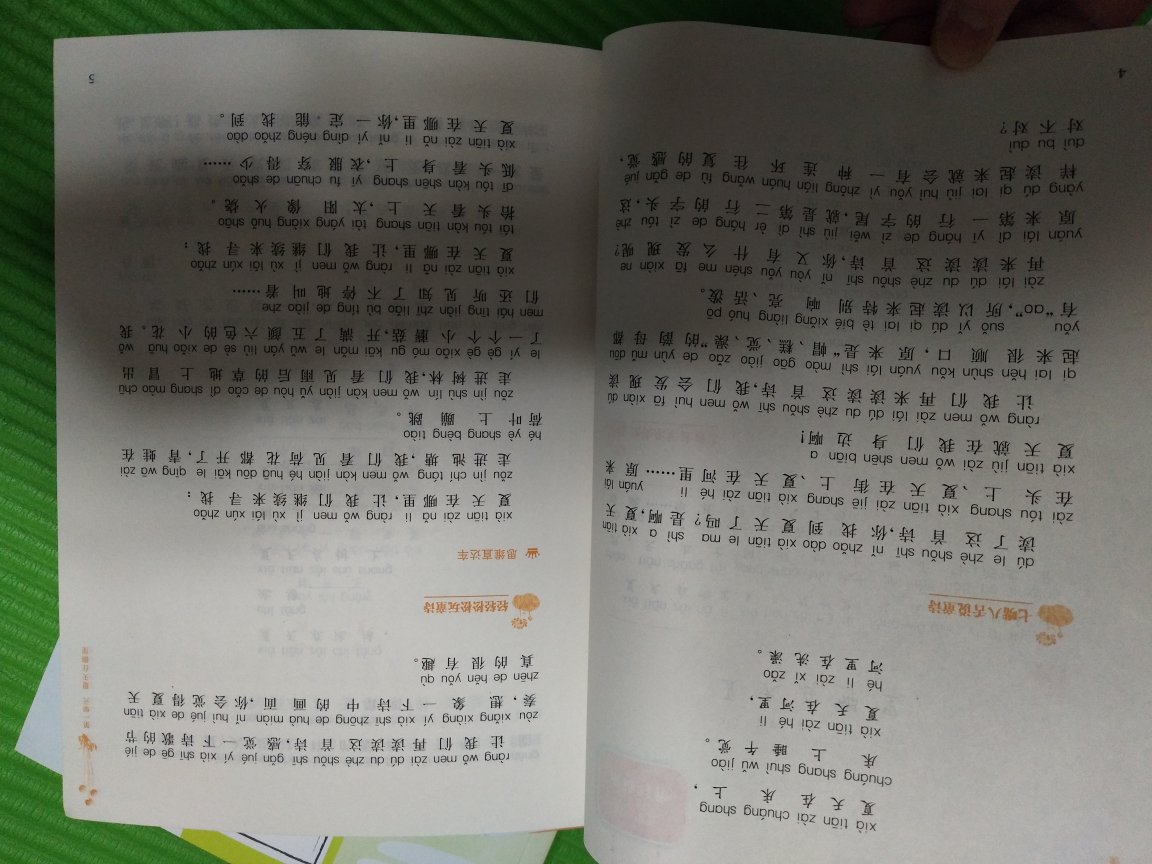 xià tiān zài chuáng shang
夏天在床上，
chuáng shang shuì wǔ jiào
床上睡午觉。
xià tiān zài hé li
夏天在河里，
hé li zài xǐ zǎo
河里在洗澡。
七嘴八舌说童诗
dú le zhè shǒu shī nǐ zhǎo dào xià tiān le ma shì a xià tiān
读了这首诗，你找到夏天了吗？是啊，夏天
zài tóu shang xià tiān zài jiē shang xià tiān zài hé li yuán lái
在头上、夏天在街上、夏天在河里……原来
xià tiān jiù zài wǒ men shēn biān a
夏天就在我们身边啊！
ràng wǒ men zài lái dú du zhè shǒu shī wǒ men huì fā xiàn dú
让我们再来读读这首诗，我们会发现读
qi lai hěn shùn kǒu yuán lái shì mào gāo jiào zǎo de yùn mǔ dōu
起来很顺口，原来是“帽、糕、觉、澡”的韵母都
yǒu suǒ yǐ dú qi lai tè bié xiǎng liàng huó pō
有“ao”，所以读起来特别响亮、活泼。
zài lái dú du zhè shǒu shī nǐ yòu yǒu shén me fā xiàn ne
再来读读这首诗，你又有什么发现呢？
yuán lái dì yī háng de zì wěi jiù shì dì èr háng de zì tóu zhè
原来第一行的字尾，就是第二行的字头，这
yàng dú qi lai jiù huì yǒu yì zhǒng lián huán wǎng fù de gǎn jué
样读起来就会有一种连环往复的感觉，
duì bu duì
对不对？
4
第一单元 夏天在哪里
ràng wǒ men zài dú du zhè shǒu shī gǎn jué yí xià shī gē de jié
让我们再读读这首诗，感觉一下诗歌的节
zòu xiǎng xiàng yí xià shī zhōng de huà miàn nǐ huì jué de xià tiān
奏，想象一下诗中的画面，你会觉得夏天
zhēn de hěn yǒu qù
真的很有趣。
轻轻松松玩童诗
思维直达车
xià tiān zài nǎ li ràng wǒ men jì xù lái xún zhǎo
夏天在哪里，让我们继续来寻找：
zǒu jìn chí táng wǒ men kàn jiàn hé huā dōu kāi le qīng wā zài
走进池塘，我们看见荷花都开了，青蛙在
hé yè shang bèng tiào
荷叶上蹦跳。
zǒu jìn shù lín wǒ men kàn jiàn yǔ hòu de cǎo dì shang mào chū
走进树林，我们看见雨后的草地上冒出
le yí gè gè xiǎo mó gu kāi mǎn le wǔ yán liù sè de xiǎo huā wǒ
了一个个小蘑菇，开满了五颜六色的小花。我
men hái tīng jiàn zhī liǎo bù tíng de jiào zhe
们还听见知了不停地叫着……
xià tiān zài nǎ li ràng wǒ men jì xù lái xún zhǎo
夏天在哪里，让我们继续来寻找：
tái tóu kàn tiān shang tài yáng xiàng huǒ shāo
抬头看天上，太阳像火烧。
dī tóu kàn shēn shang yī fu chuān de shǎo
低头看身上，衣服穿得少……
xià tiān zài nǎ li nǐ yí dìng néng zhǎo dào
夏天在哪里，你一定能找到。
5